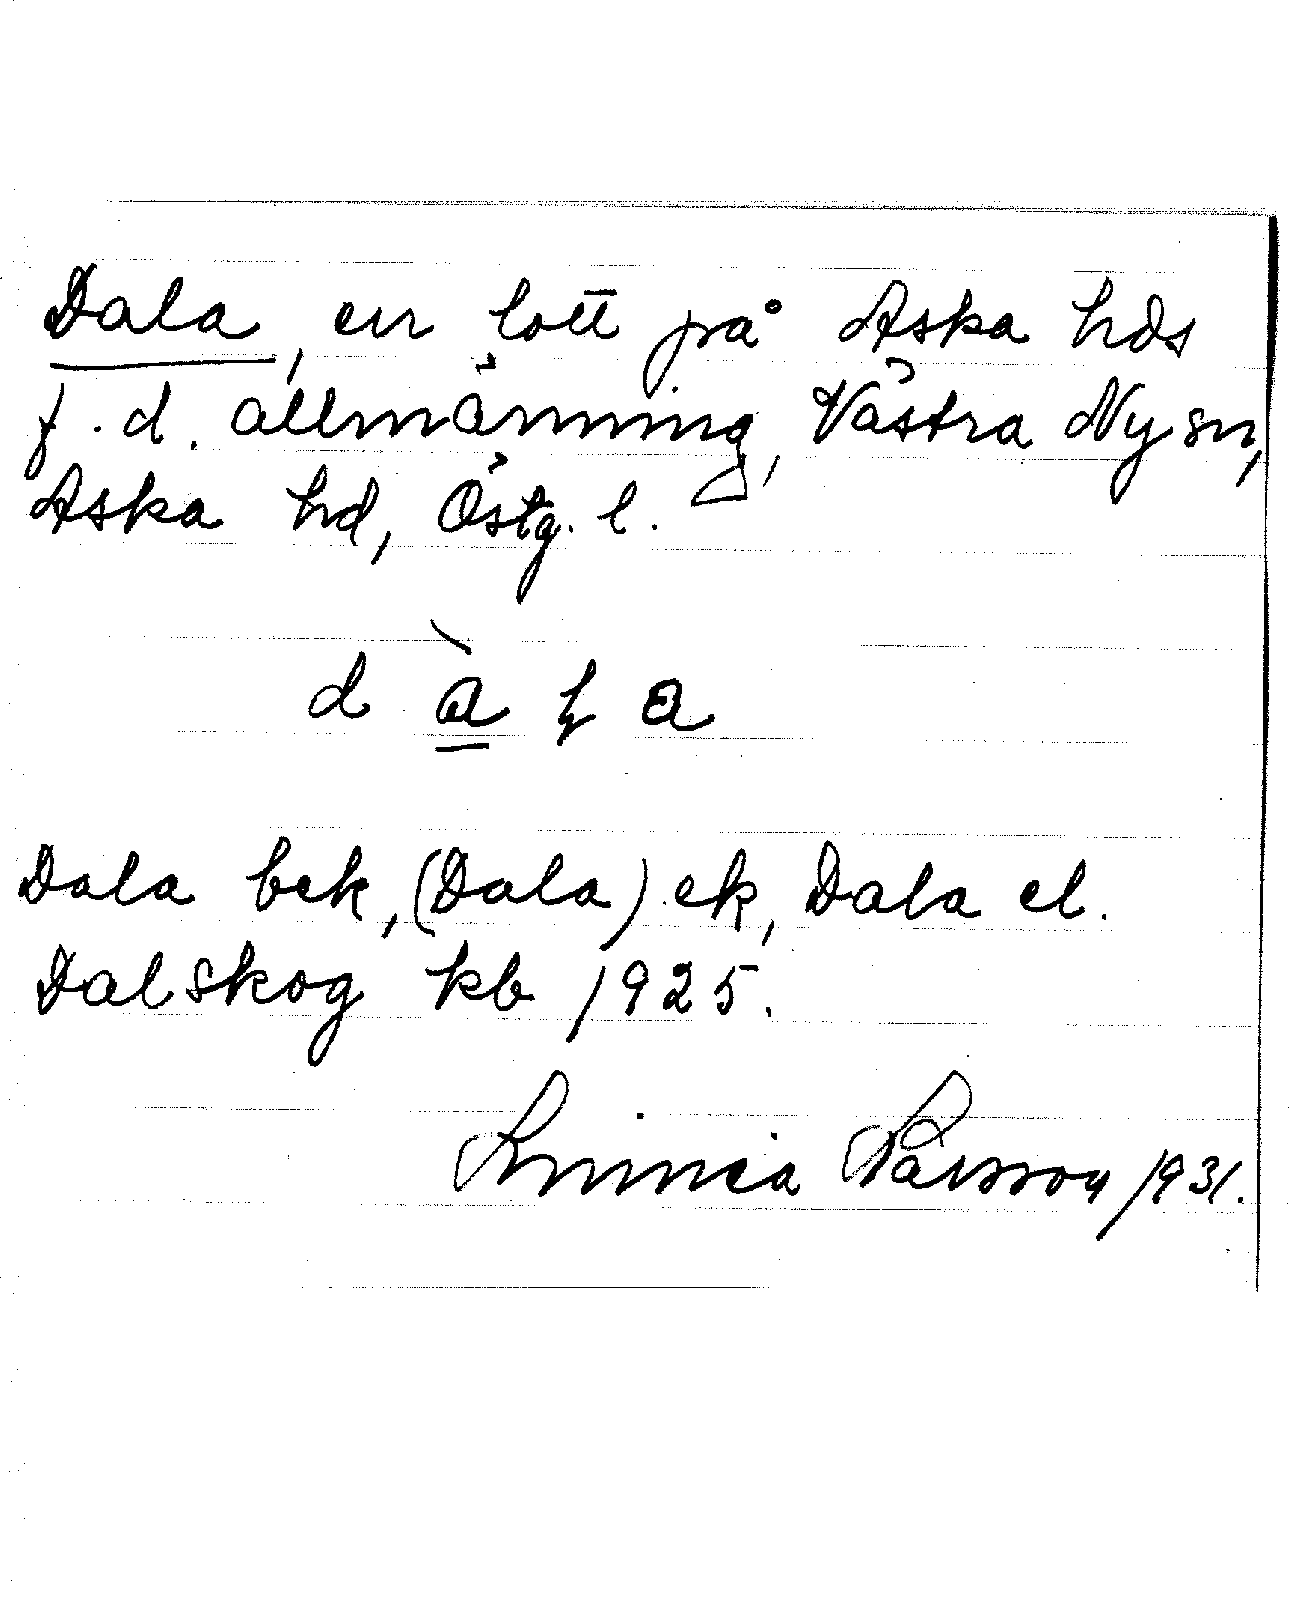 Dala, en lott på Aska hds
f.d. allmänning, Västra Ny sn,
Aska hd, Östg. l.
d à̱ ɽ a
Dala bek, (Dala) ek, Dala el.
Dalskog kb 1925.
Linnea Parsson 1931.